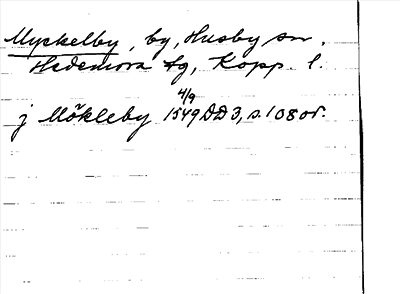 Myckelby, by, Husby sn.
Hedemora tg, Kopp. l.
4/9
j Mökleby 1549 DD 3, s. 108 or.